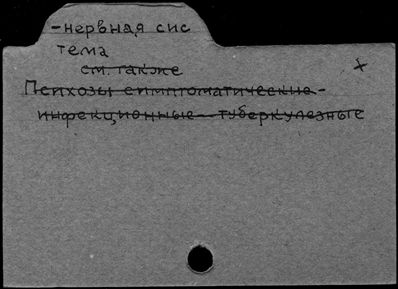 -нервная сис
тема
см. также
Психозы симптоматические-
инфекционные-туберкулезные